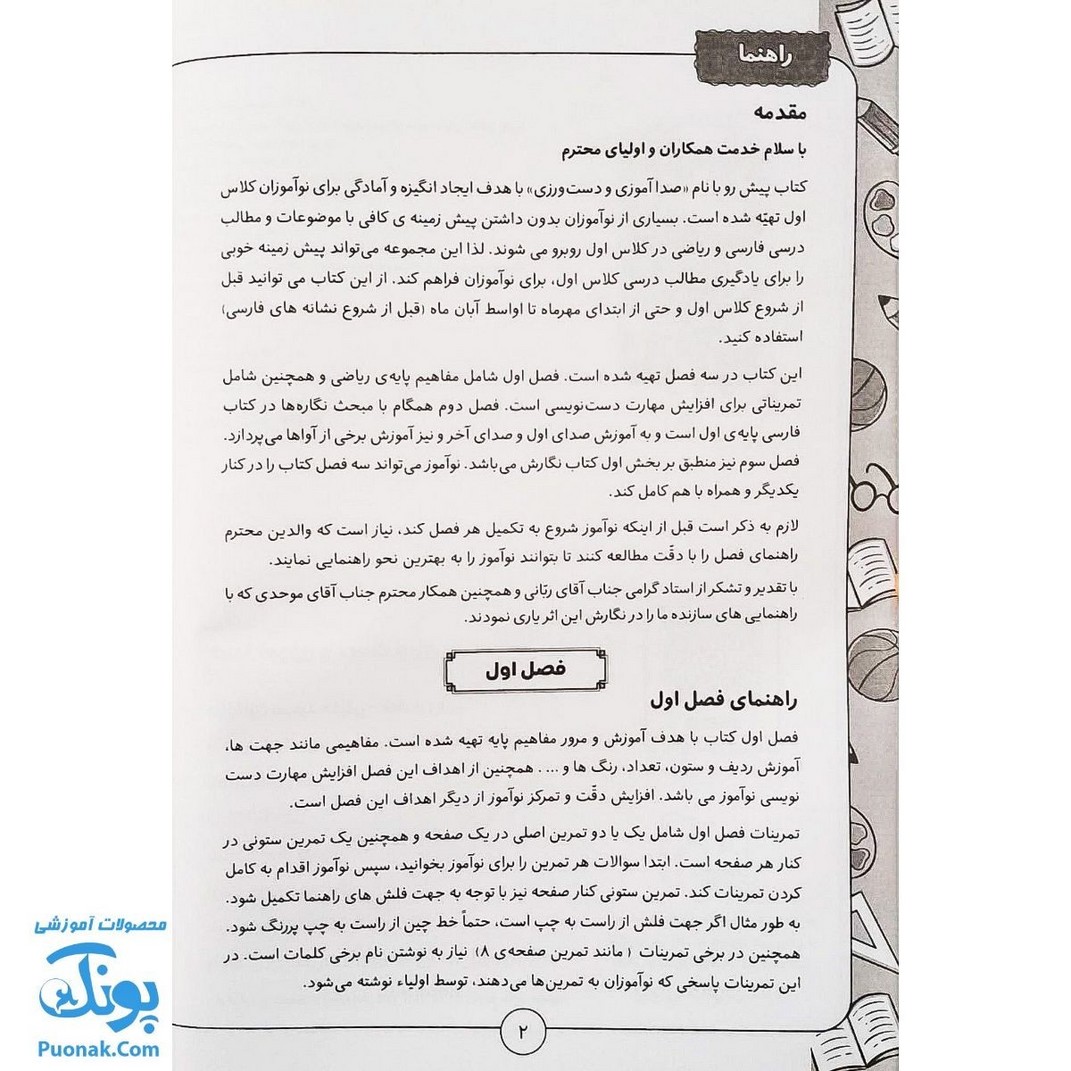 راهنما
مقدمه
با سلام خدمت همکاران و اولیای محترم
کتاب پیش رو با نام «صدا آموزی و دست‌ورزی» با هدف ایجاد انگیزه و آمادگی برای نوآموزان کلاس
اول تهیّه شده است. بسیاری از نوآموزان بدون داشتن پیش زمینه ی کافی با موضوعات و مطالب
درسی فارسی و ریاضی در کلاس اول روبرو می شوند. لذا این مجموعه می‌تواند پیش زمینه خوبی
را برای یادگیری مطالب درسی کلاس اول، برای نوآموزان فراهم کند. از این کتاب می توانید قبل
از شروع کلاس اول و حتی از ابتدای مهرماه تا اواسط آبان ماه (قبل از شروع نشانه های فارسی)
استفاده کنید.
این کتاب در سه فصل تهیه شده است. فصل اول شامل مفاهیم پایه‌ی ریاضی و همچنین شامل
تمریناتی برای افزایش مهارت دست‌نویسی است. فصل دوم همگام با مبحث نگاره‌ها در کتاب
فارسی پایه‌ی اول است و به آموزش صدای اول و صدای آخر و نیز آموزش برخی از آواها می‌پردازد.
فصل سوم نیز منطبق بر بخش اول کتاب نگارش می‌باشد. نوآموز می‌تواند سه فصل کتاب را در کنار
یکدیگر و همراه با هم کامل کند.
لازم به ذکر است قبل از اینکه نوآموز شروع به تکمیل هر فصل کند، نیاز است که والدین محترم
راهنمای فصل را با دقّت مطالعه کنند تا بتوانند نوآموز را به بهترین نحو راهنمایی نمایند.
با تقدیر و تشکر از استاد گرامی جناب آقای ربّانی و همچنین همکار محترم جناب آقای موحدی که با
راهنمایی های سازنده ما را در نگارش این اثر یاری نمودند.
فصل اول
راهنمای فصل اول
فصل اول کتاب با هدف آموزش و مرور مفاهیم پایه تهیه شده است. مفاهیمی مانند جهت ها،
آموزش ردیف و ستون، تعداد، رنگ ها و ... . همچنین از اهداف این فصل افزایش مهارت دست
نویسی نوآموز می باشد. افزایش دقّت و تمرکز نوآموز از دیگر اهداف این فصل است.
تمرینات فصل اول شامل یک یا دو تمرین اصلی در یک صفحه و همچنین یک تمرین ستونی در
کنار هر صفحه است. ابتدا سوالات هر تمرین را برای نوآموز بخوانید، سپس نوآموز اقدام به کامل
کردن تمرینات کند. تمرین ستونی کنار صفحه نیز با توجه به جهت فلش های راهنما تکمیل شود.
به طور مثال اگر جهت فلش از راست به چپ است، حتماً خط چین از راست به چپ پررنگ شود.
همچنین در برخی تمرینات ( مانند تمرین صفحه‌ی ۸) نیاز به نوشتن نام برخی کلمات است. در
این تمرینات پاسخی که نوآموزان به تمرین‌ها می‌دهند، توسط اولیاء نوشته می‌شود.
۲
محصولات آموزشی
پونک
Puonak.Com